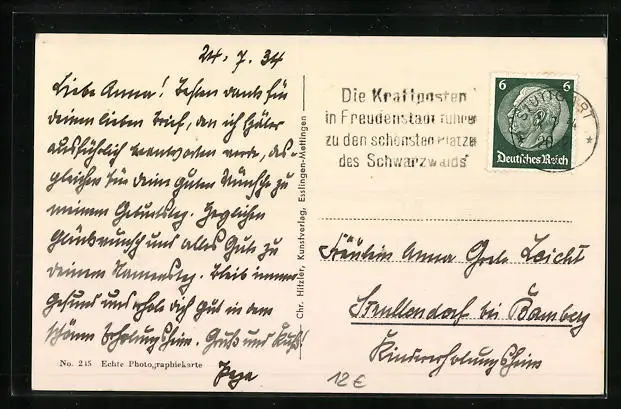 24.7.34
Liebe Anna! Besten Dank für
deinen lieben Brief, den ich später
ausführlich beantworten werde, des-
gleichen für deine guten Wünsche zu
meinem Geburtstag. Herzlichen
Glückwunsch und alles Gute zu
deinem Namenstag. Bleib immer
gesund und erhole dich gut in dem
schönen Erholungsheim. Gruß und Kuß!
No. 245 Echte Photographiekarte
Chr. Hitzler, Kunstverlag, Esslingen-Mettingen
Die Kraftposten
in Freudenstadt führen
zu den schönsten Plätzen
des Schwarzwalds
6 6
Deutsches Reich
STUTTGART
Fräulein Anna Grete Leicht
bei Bamberg
Kindererholungsheim
12 €